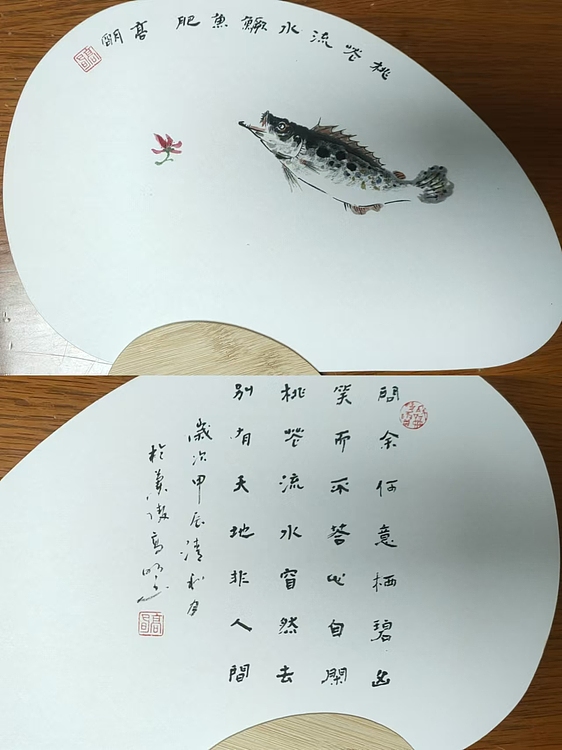 桃花流水鱖魚肥 高明
問余何意栖碧山
笑而不答心自閑
桃花流水窅然去
別有天地非人間
歲次甲辰清和月
於 高明